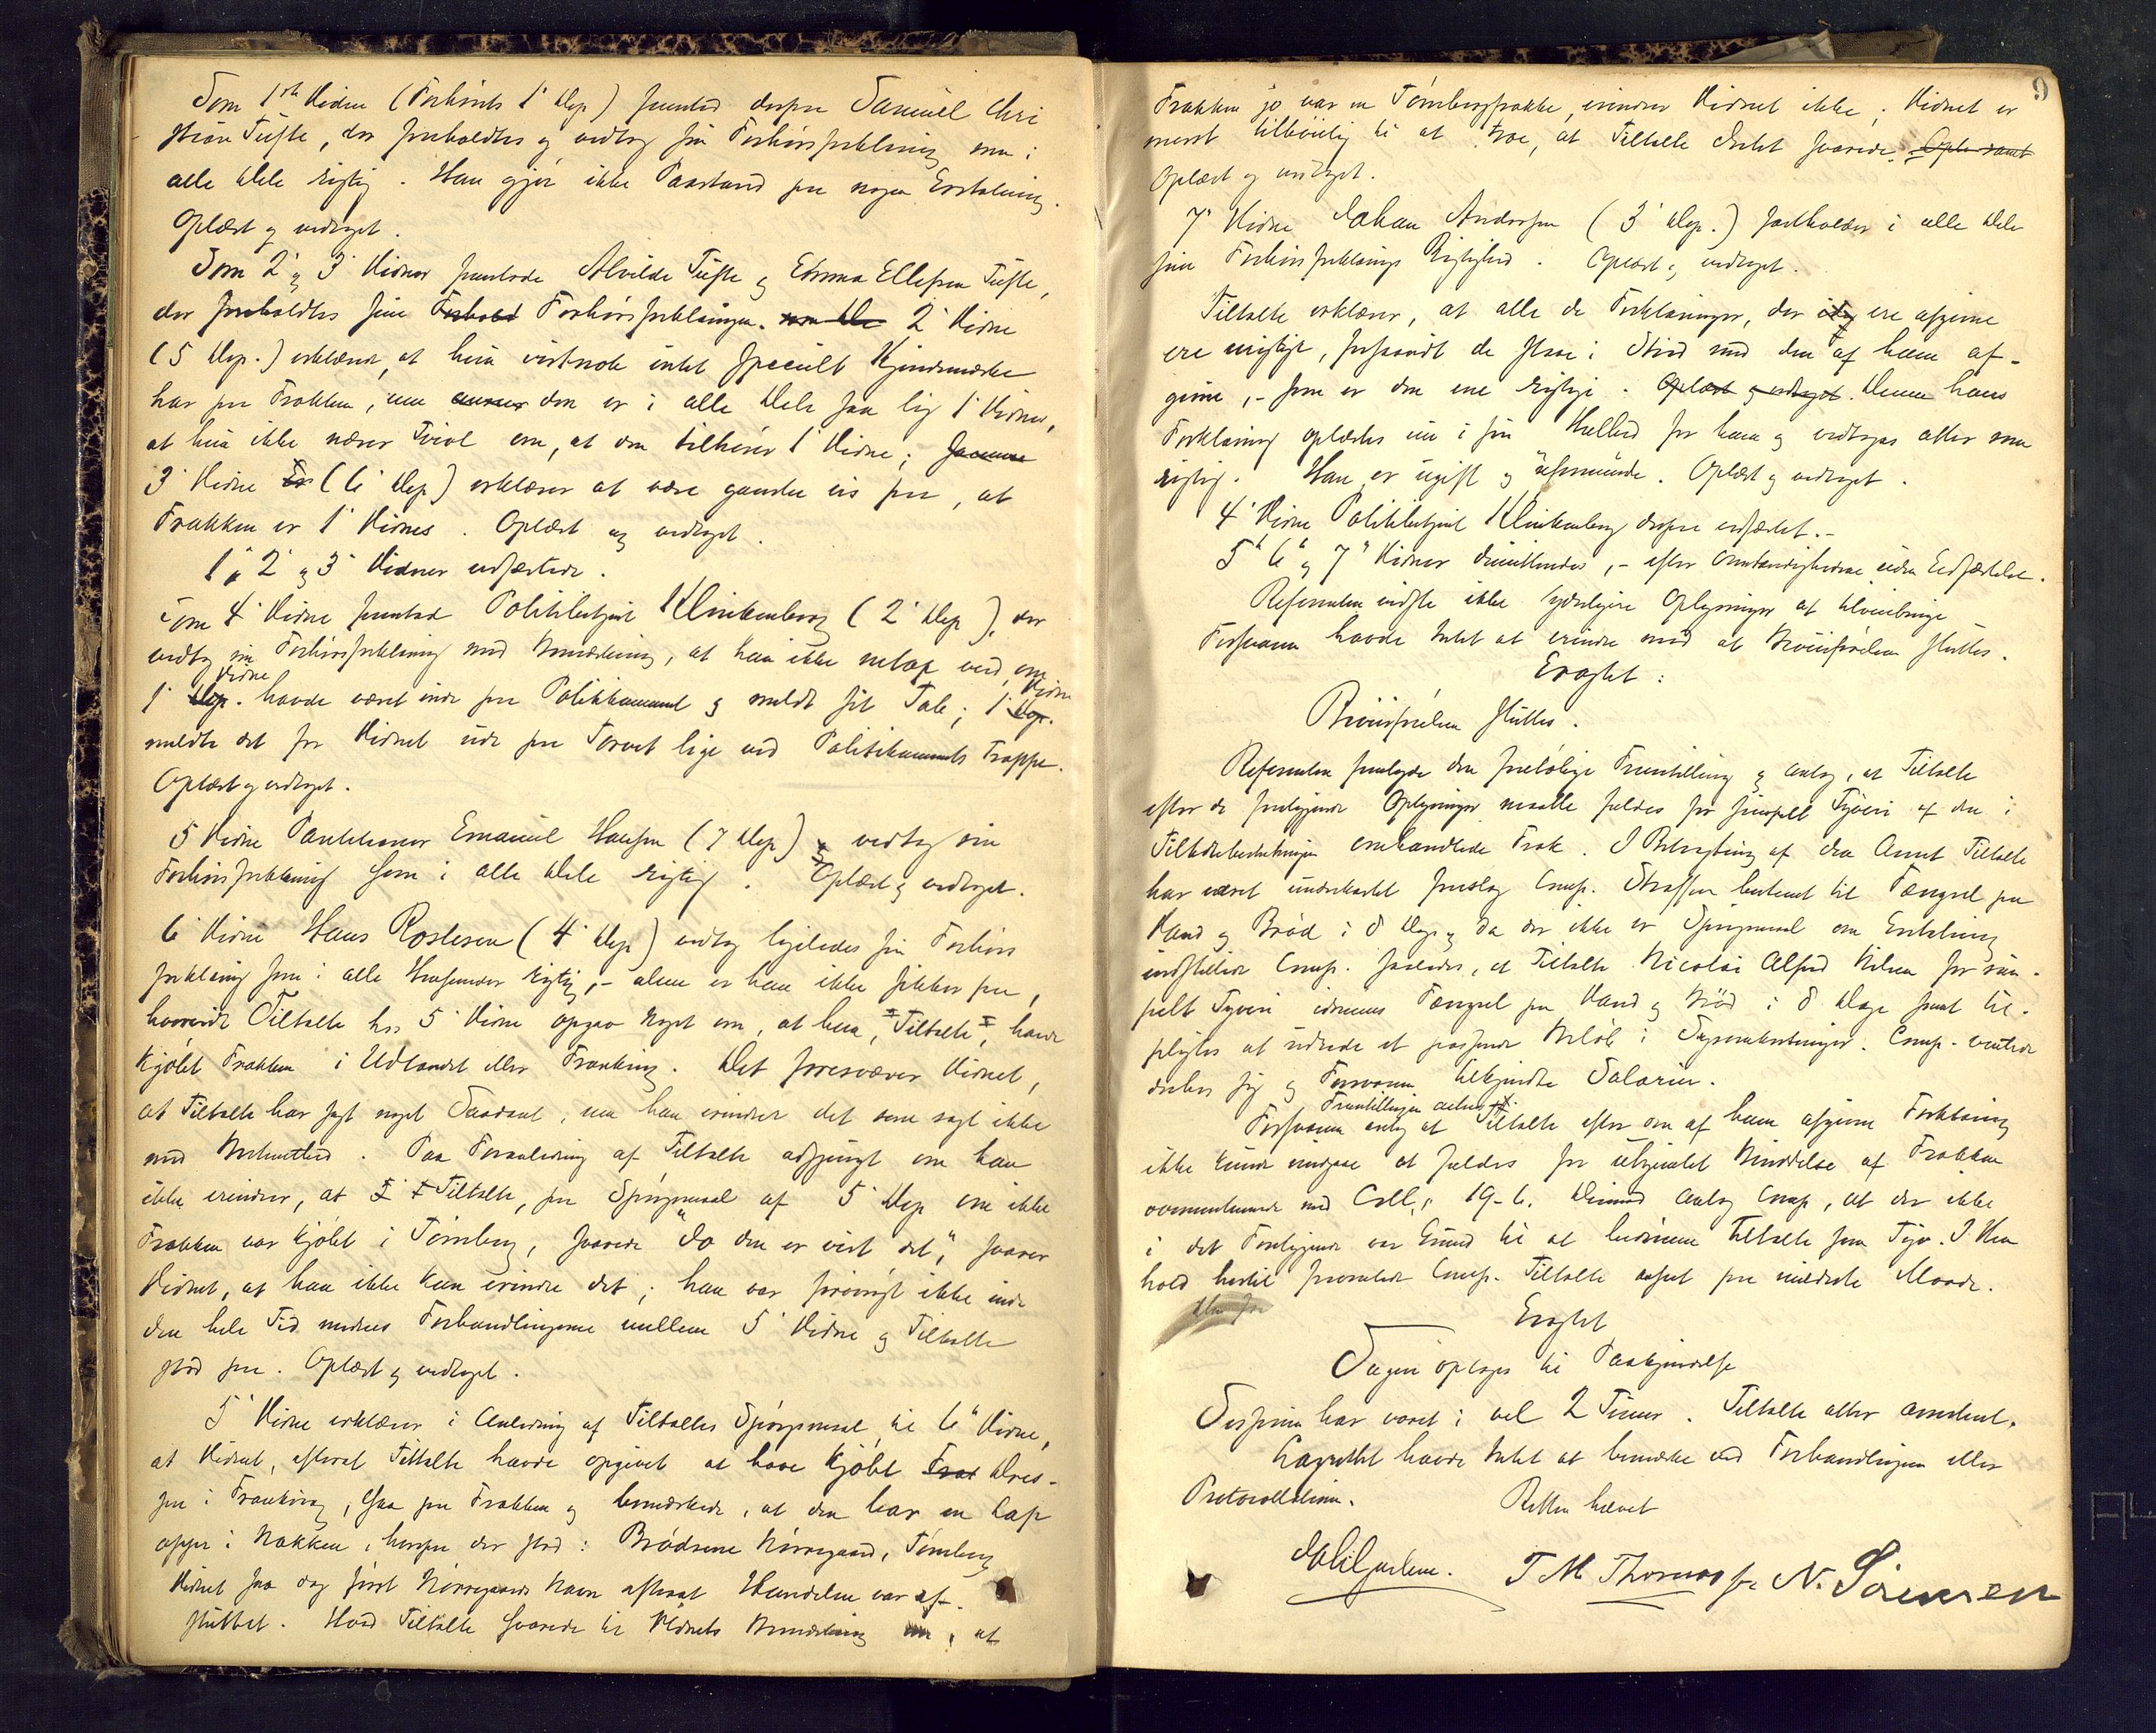 Som 1ste Vidne (Forhørets 1' Dep) fremstod derpaa Samuel Chri
stian Tufte, der foreholdtes og vedtog sin Forhørsforklaring som i
alle Dele rigtig. Han gjør ikke Paastand paa nogen Erstatning.
Oplæst og vedtaget.
Som 2' og 3' Vidner fremstode Alvilde Tufte og Emma Ellefsen Tufte,
der foreholdtes sine Forhørsforklaringer. 2' Vidne
(5 Dep.) erklærede, at hun vistnok intet specielt Kjendemærke
har paa Frakken, men den er i alle Dele saa lig 1' Vidnes,
at hun ikke nærer Tvivl om, at den tilhører 1' Vidne;
3' Vidne (6' Dep) erklærer at være ganske vis paa, at
Frakken er 1' Vidnes. Oplæst og vedtaget.
1', 2' og 3' Vidner edfæstede.
Som 4' Vidne fremstod Politibetjent Klinkenberg (2' Dep), der
vedtog sin Forhørsforklaring med Bemærkning, at han ikke netop ved, om
1' Vidne havde været inde paa Politikammeret og meldt sit Tab; 1' Vidne
meldte det for Vidnet ude paa Torvet lige ved Politikammerets Trappe.
Oplæst og vedtaget.
5 Vidne Pantelaaner Emanuel Hansen (7 Dep) vedtog sin
Forhørsforklaring som i alle Dele rigtig. Oplæst og vedtaget.
6' Vidne Hans Roslesen (4' Dep) vedtog ligeledes sin Forhørs
forklaring som i alle Henseender rigtig, - alene er han ikke sikker paa,
hvorvidt Tiltalte hos 5' Vidne opgav noget om, at han, Tiltalte, havde
kjøbt Frakken i Udlandet eller Frankrig. Det foresvæver Vidnet,
at Tiltalte har sagt noget Saadant, men han erindrer det som sagt ikke
med Bestemthed. Paa Foranledning af Tiltalte adspurgt om han
ikke erindrer, at Tiltalte, paa Spørgsmaal af 5' Dep om ikke
Frakken var kjøbt i Tønsberg, svarede "Jo den er vist det", svarer
Vidnet, at han ikke kan erindre det; han var forøvrigt ikke inde
den hele Tid medens Forhandlingerne mellem 5' Vidne og Tiltalte
stod paa. Oplæst og vedtaget.
5' Vidne erklærer i Anledning af Tiltaltes Spørgsmaal til 6' Vidne,
at Vidnet, efterat Tiltalte havde opgivet at have kjøbt Dres-
sen i Frankrig, saa paa Frakken og bemærkede, at den har en Lap
oppe i Nakken, hvorpaa der stod: Brødrene Nørregaard, Tønsberg
Vidnet saa dog først Nørregaards Navn efterat Handelen var af-
sluttet. Hvad Tiltalte svarede til Vidnets Bemærkning, at
9
Frakken jo var en Tønsbergfrakke, erindrer Vidnet ikke; Vidnet er
mest tilbøielig til at troe, at Tiltalte Intet svarede.
Oplæst og vedtaget.
7' Vidne Johan Andersen (3' Dep.) fastholder i alle Dele
sin Forhørsforklarings Rigtighed. Oplæst og vedtaget.
Tiltalte erklærer, at alle de Forklaringer, der ere afgivne
ere urigtige, forsaavidt de staae i Strid med den af ham af-
givne, - som er den ene rigtige. Denne hans
Forklaring oplæstes nu i sin Helhed for ham og vedtoges atter som
rigtig. Han er ugift og uformuende. Oplæst og vedtaget.
4' Vidne Politibetjent Klinkenberg derpaa edfæstet.-
5' 6' og 7' Vidner dimitteredes, - efter Omstændighederne uden Edfæstelse.
Referenten vidste ikke yderligere Oplysninger at tilveiebringe
Forsvaren havde Intet at erindre mod at Bevisførelsen sluttes.
Eragtet:
Bevisførelsen sluttes.
Referenten fremlagde den foreløbige Fremstilling og antog, at Tiltalte
efter de foreliggende Oplysninger maatte fældes for simpelt Tyveri af den i
Tiltalebeslutningen omhandlede Frak. I Betragtning af den Arrest Tiltalte
har været underkastet foreslog Comp. Straffen bestemt til Fængsel paa
Vand og Brød i 8 Dage og da der ikke er Spørgsmaal om Erstatning
indstillede Comp. saaledes, at Tiltalte Nicolai Alfred Nilsen for sim-
pelt Tyveri idømmes Fængsel paa Vand og Brød i 8 Dage samt til-
pligtes at udrede et passende Beløb i Sagsomkostninger. Comp. ventede
derhos sig og Forsvaren tilkjendte Salarier.
Fremstillingen
Forsvaren antog at Tiltalte efter den af ham afgivne Forklaring
ikke kunde undgaae at fældes for ubeføiet Benyttelse af Frakken
overensstemmende med Crll.s 19-6. Derimod antog Comp, at der ikke
i det Foreliggende var Grund til at bedømme Tiltalte som Tyv. I Hen
hold hertil paastod Comp. Tiltalte anseet paa mildeste Maade.
Eragtet
Sagen optages til Paakjendelse
Sessionen har varet i vel 2 Timer. Tiltalte atter arresteret.
Lagrettet havde Intet at bemærke ved Forhandlingen eller
Protocollationen.
Retten hævet
T M Thomassen N. Sörensen